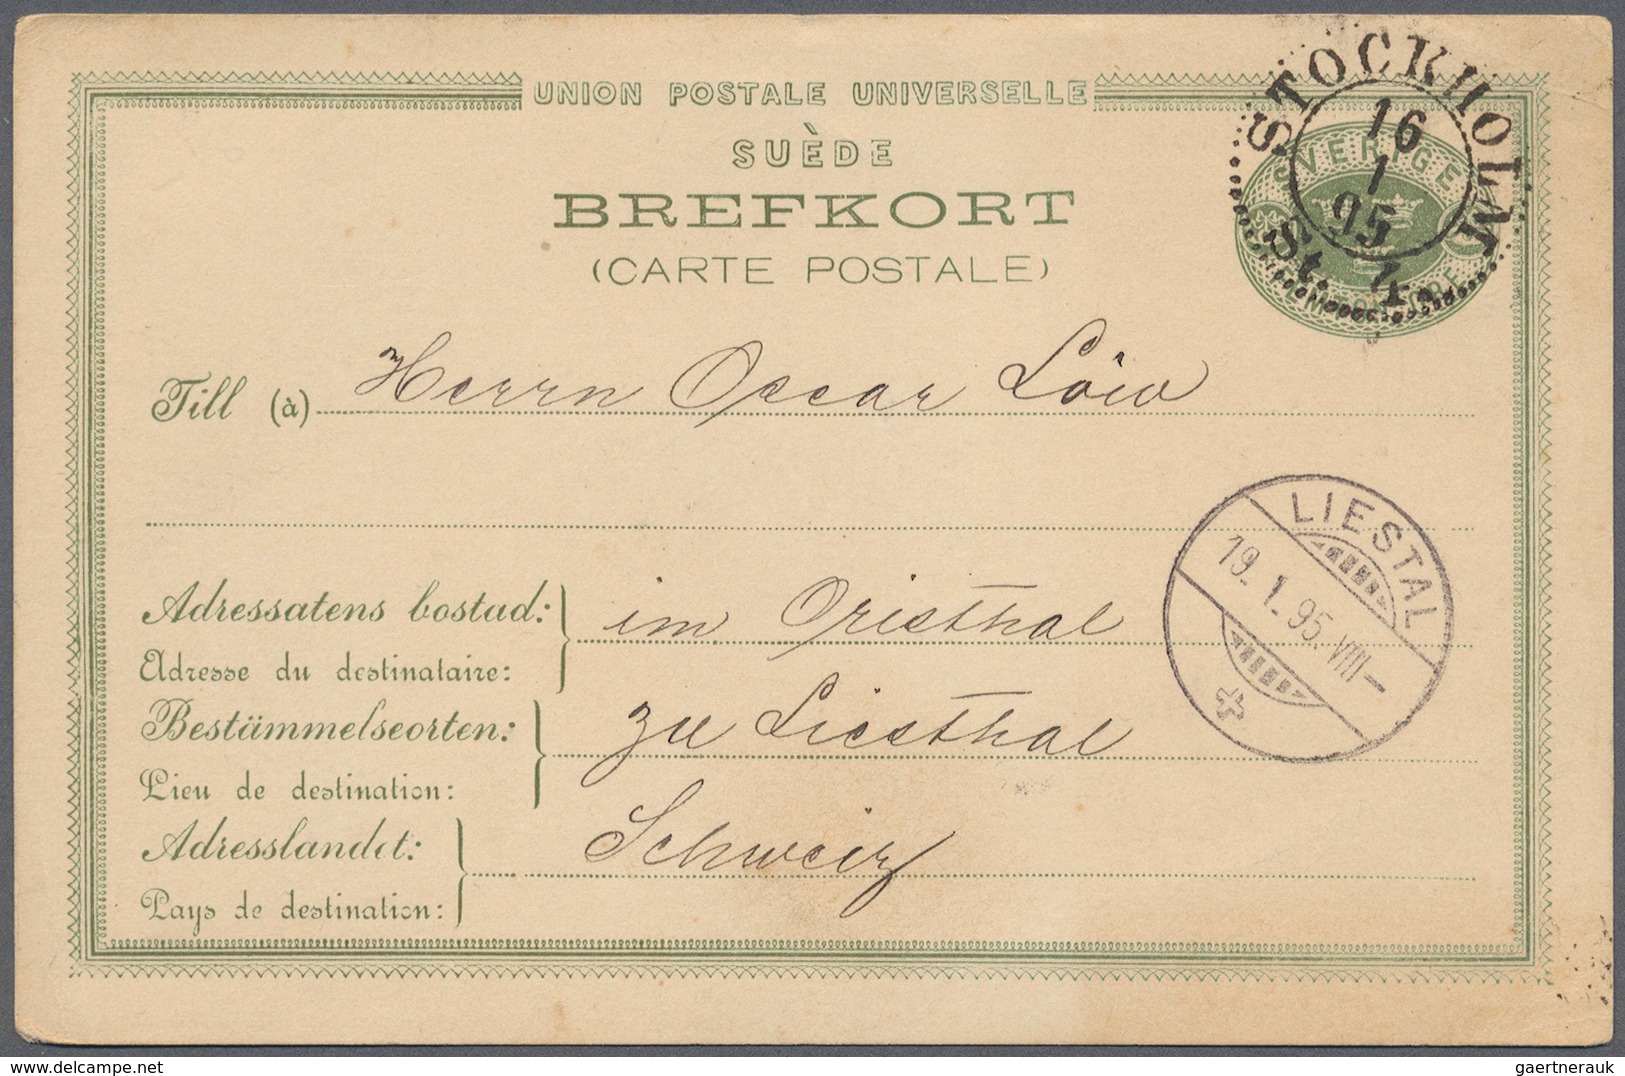 UNION POSTALE UNIVERSELLE
SUÈDE
BREFKORT
(CARTE POSTALE)
STOCKHOLM
16
1
95
St. 4.
SVERIGE
FEM ÖRE
Till (à) Herrn Oscar Löw
LIESTAL
19. 1. 95. VIII–
Adressatens bostad: im Oristhal
Adresse du destinataire:
Bestämmelseorten: zu Liesthal
Lieu de destination:
Adresslandet: Schweiz
Pays de destination:
delcampe.net
gaertnerauk